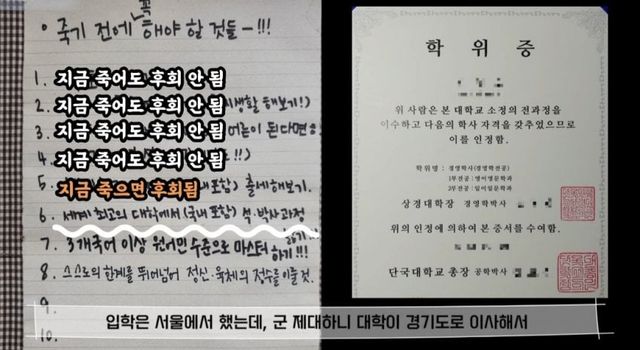 • 죽기 전에 꼭 해야 할 것들-!!!
1. 지금 죽어도 후회 안 됨
2. 지금 죽어도 후회 안 됨 해보기!)
3. 지금 죽어도 후회 안 됨 된다면
4. 지금 죽어도 후회 안 됨 !!)
5. 지금 죽으면 후회됨 포함) 출세해보기.
6. 세계 최고의 대학에서(국내 포함) 석·박사 과정
7. 3개국어 이상 원어민 수준으로 마스터 하기!!!
8. 스스로의 한계를 뛰어넘어 정신·육체의 정수를 이룰 것.
9.
10.
학위증
위 사람은 본 대학교 소정의 전과정을
이수하고 다음의 학사 자격을 갖추었으므로
이를 인정함.
학위명 : 경영학사(경영학전공)
1부전공 : 영어영문학과
2부전공 : 일어일문학과
상경대학장 경영학박사
위의 인정에 의하여 본 증서를 수여함.
단국대학교 총장 공학박사
입학은 서울에서 했는데, 군 제대하니 대학이 경기도로 이사해서